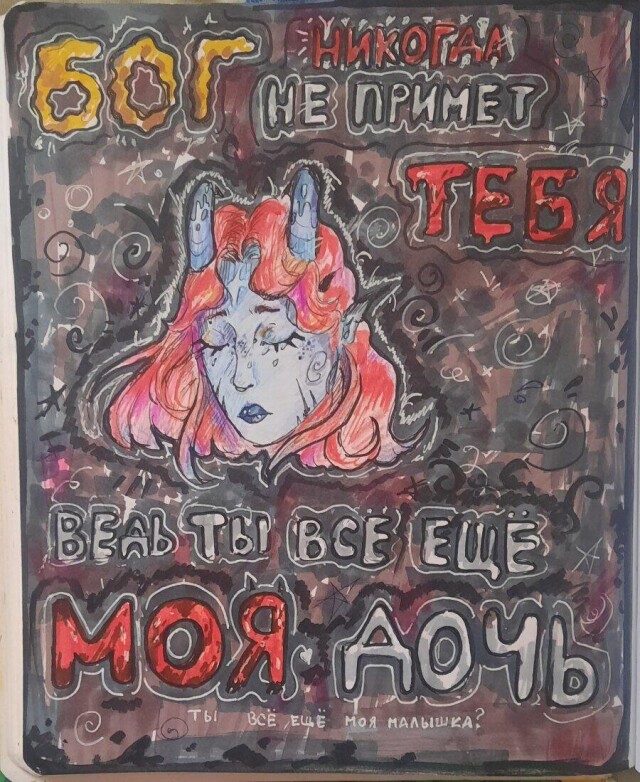 БОГ НИКОГДА
НЕ ПРИМЕТ
ТЕБЯ
ВЕДЬ ТЫ ВСЕ ЕЩЁ
МОЯ ДОЧЬ
ТЫ ВСЁ ЕЩЁ МОЯ МАЛЫШКА?